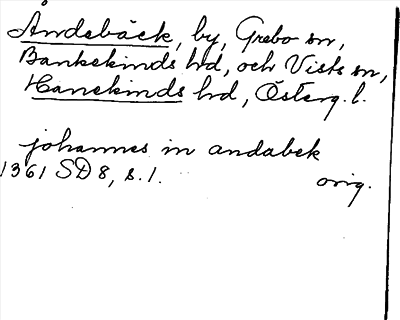 Åndebäck, by, Grebo sn,
Bankekinds hd, och Vists sn,
Hanekinds hd, Österg. l.
johannes in andabek
1361 SD 8, s. 1. orig.